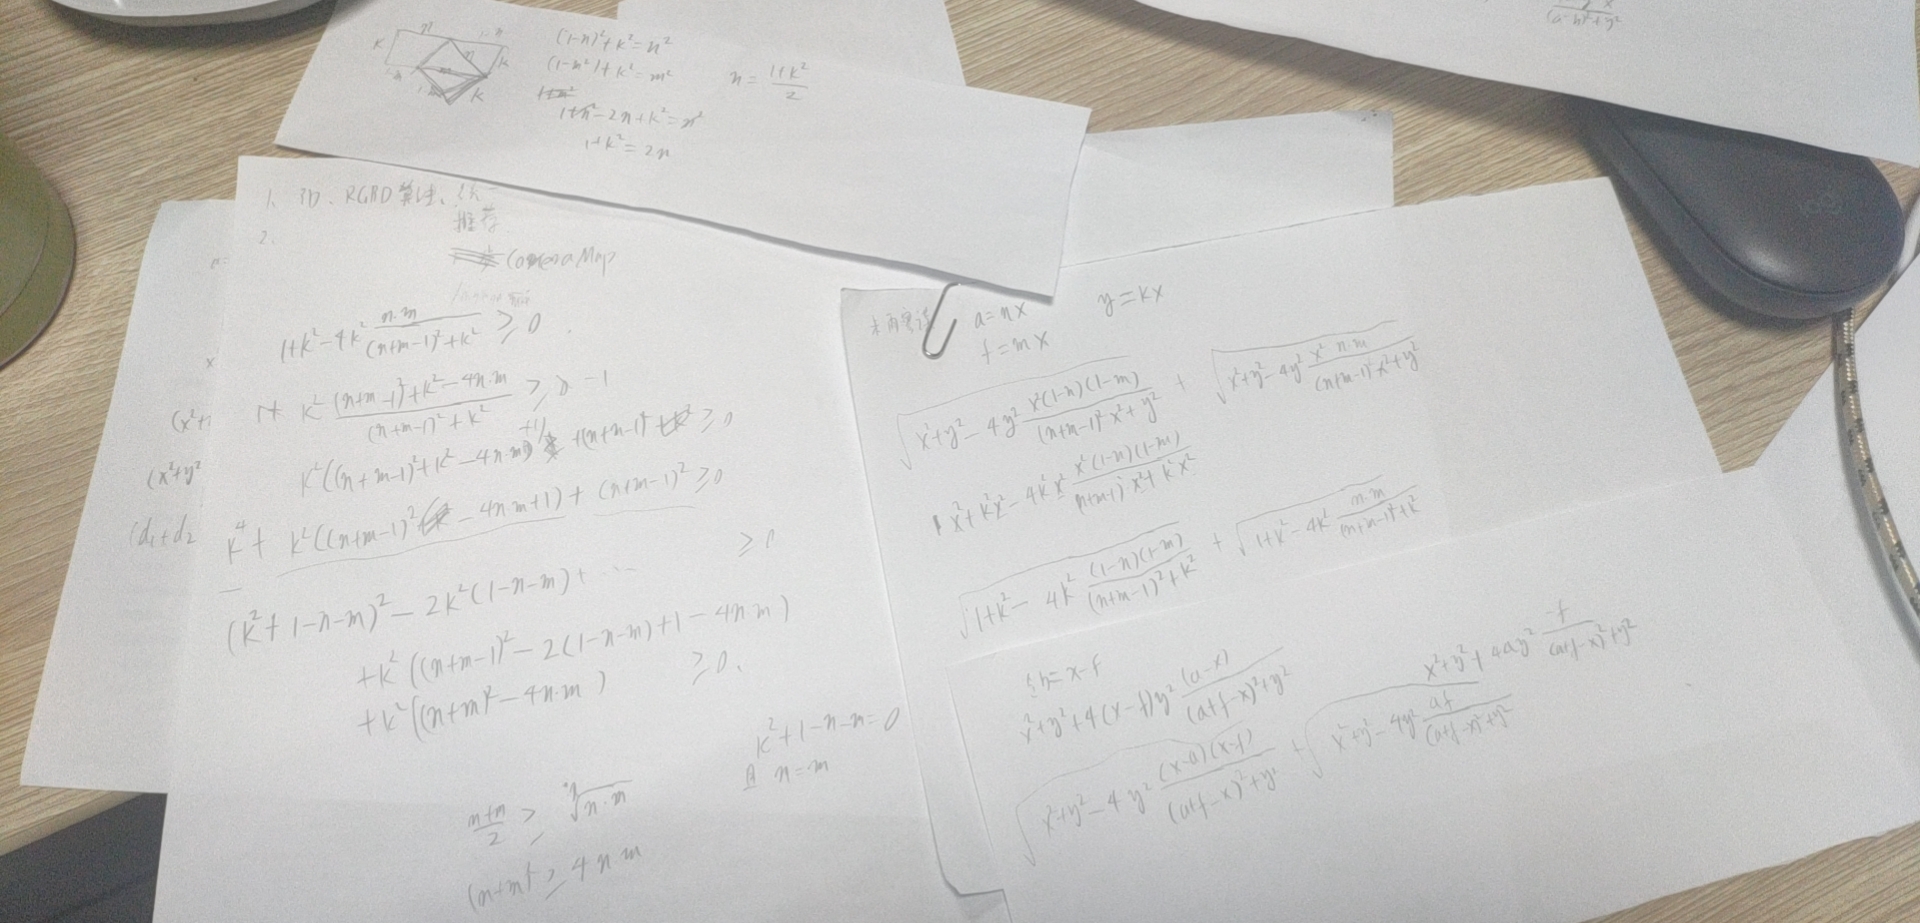 (1-n)²+k²=n²
(1-n²)+k²=m²
1+n²-2n+k²=n²
1+k²=2n
n=\frac{1+k²}{2}
k
n
k
k
1. 3D、RGBD算法、
推荐
2.
Camera Map
1+k²-4k²\frac{n·m}{(n+m-1)²+k²}≥0
1+k²\frac{(n+m-1)²+k²-4n·m}{(n+m-1)²+k²}≥0-1
k²((n+m-1)²+k²-4n·m+1)+(n+m-1)²≥0
k⁴+k²((n+m-1)²-4n·m+1)+(n+m-1)²≥0
(k²+1-n-m)²-2k²(1-n-m)+... ≥0
+k²((n+m-1)²-2(1-n-m)+1-4n·m)
+k²((n+m)²-4n·m) ≥0.
k²+1-n-m=0
且 n=m
\frac{n+m}{2}≥\sqrt{n·m}
(n+m)²≥4n·m
(x²+y²
(d₁+d₂
a=nx
f=mx
y=kx
\sqrt{x²+y²-4y²\frac{x²(1-n)(1-m)}{(n+m-1)²x²+y²}}+\sqrt{x²+y²-4y²\frac{x²n·m}{(n+m-1)²x²+y²}}
x²+k²x²-4k²x²\frac{x²(1-n)(1-m)}{(n+m-1)²x²+k²x²}
\sqrt{1+k²-4k²\frac{(1-n)(1-m)}{(n+m-1)²+k²}}+\sqrt{1+k²-4k²\frac{n·m}{(n+m-1)²+k²}}
b=x-f
x²+y²+4(x-f)y²\frac{(a-x)}{(a+f-x)²+y²}
x²+y²+4ay²\frac{-f}{(a+f-x)²+y²}
\sqrt{x²+y²-4y²\frac{(x-a)(x-f)}{(a+f-x)²+y²}}+\sqrt{x²+y²-4y²\frac{af}{(a+f-x)²+y²}}